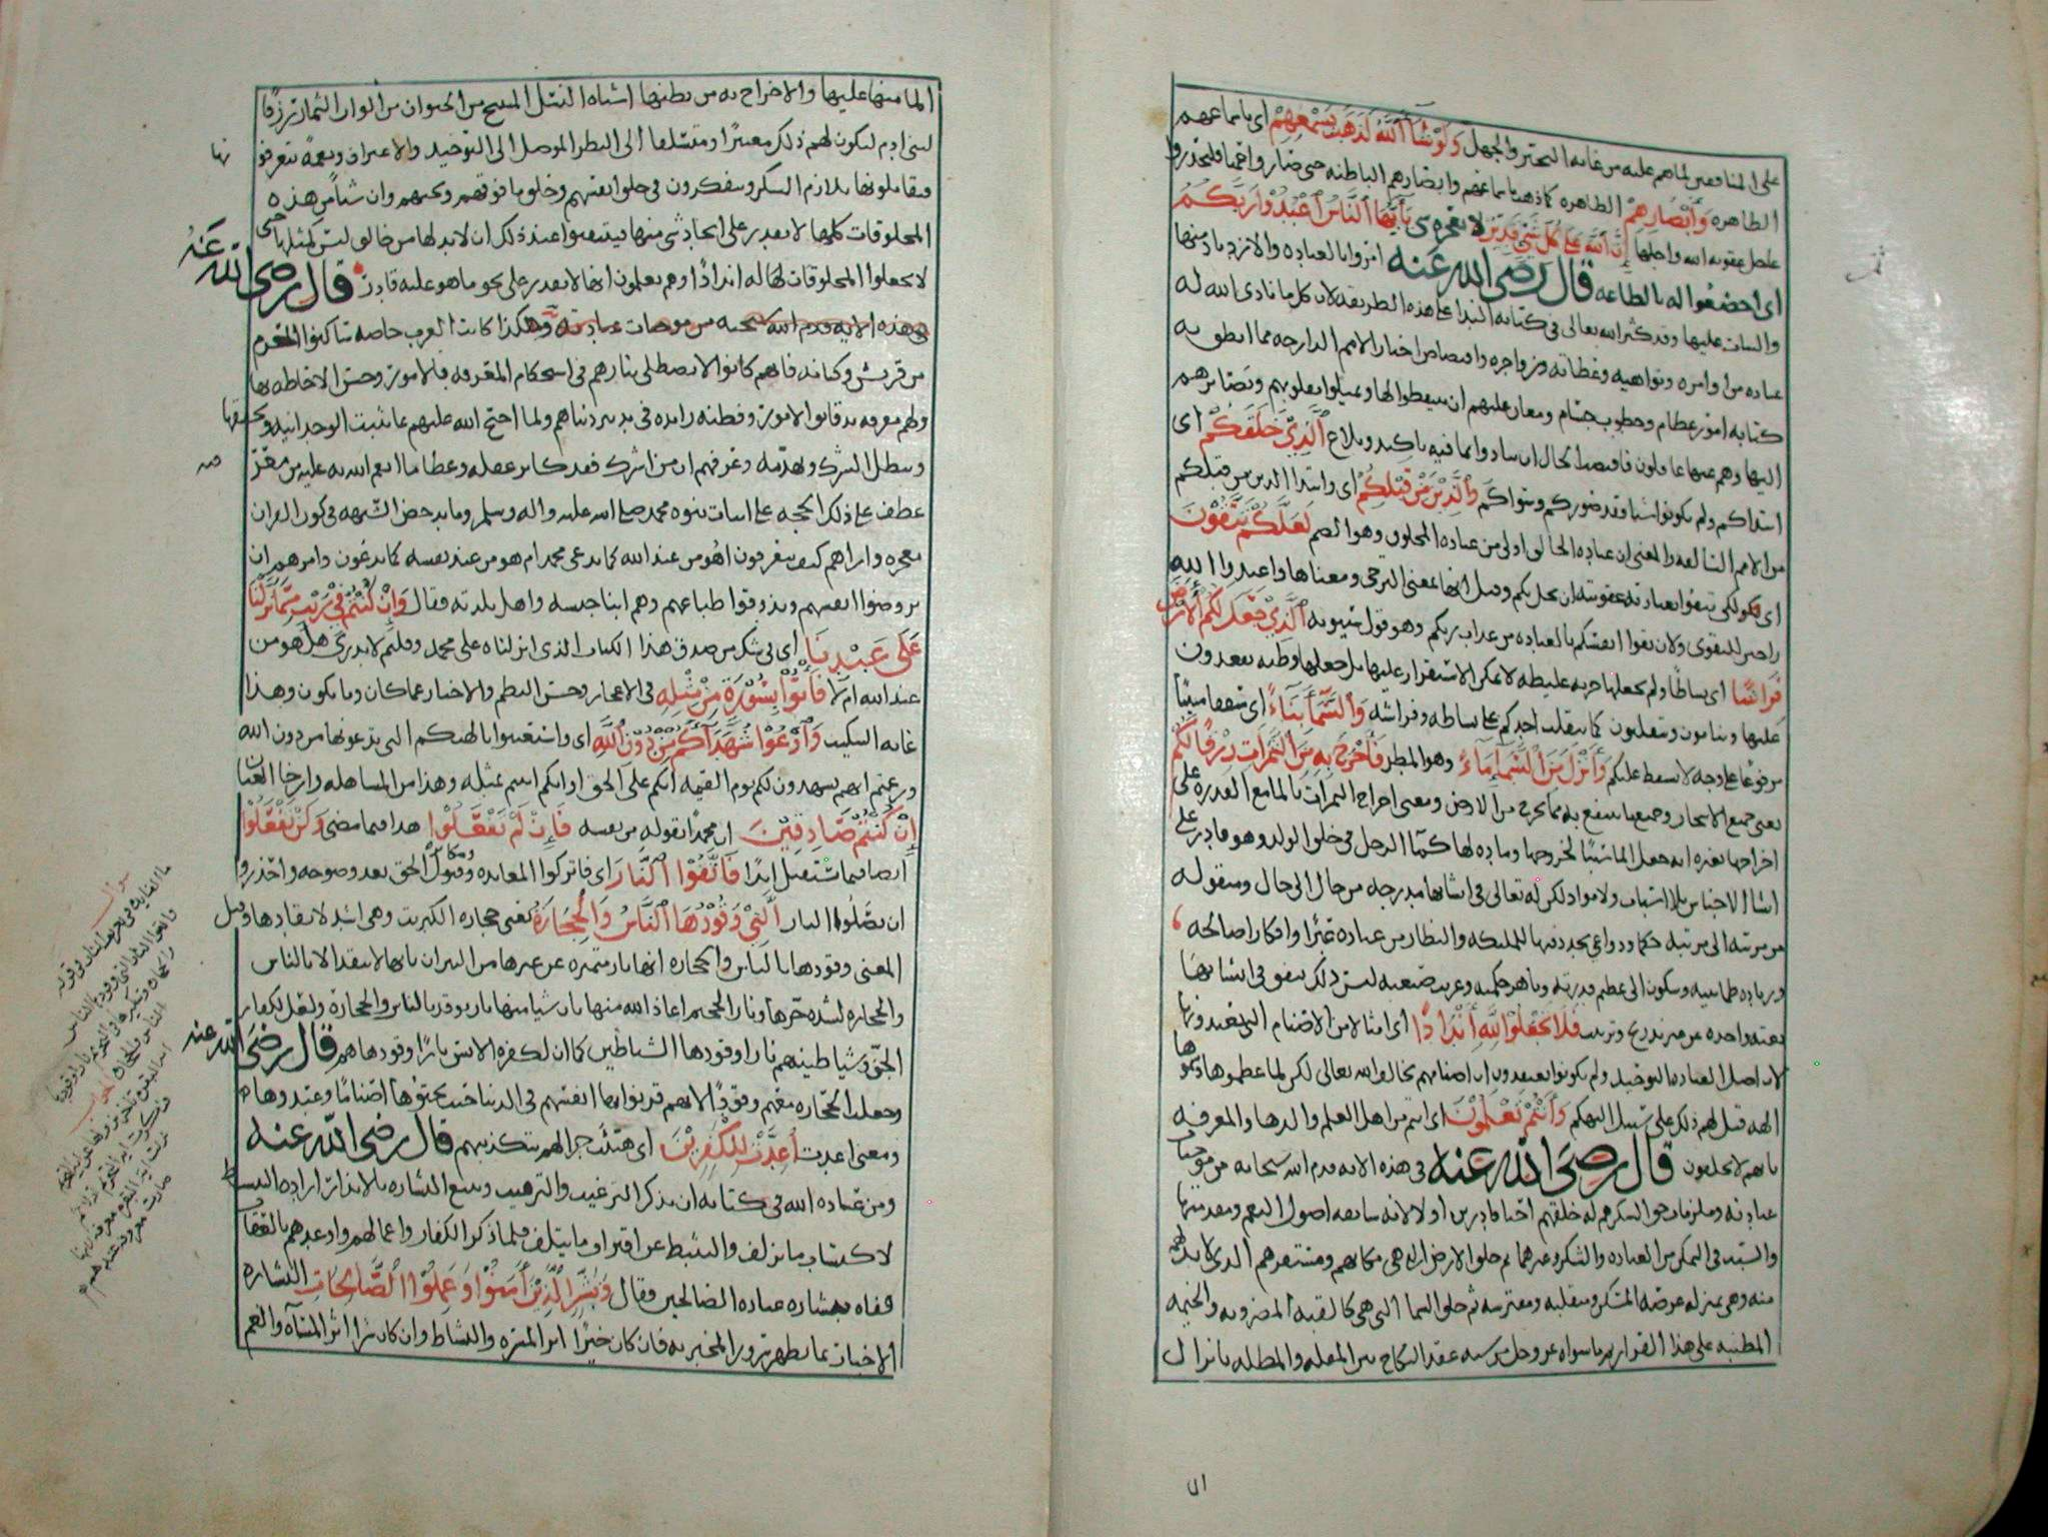 على المنافقين لما هم عليه من غايه التحير والجهل وَلَوْ شَآءَ اللَّهُ لَذَهَبَ بِسَمْعِهِمْ اى باسماعهم
الظاهره وَأَبْصَارِهِمْ الظاهره كما ذهب باسماعهم وابصارهم الباطنه حتى صاروا فليحذروا
عاجل عقوبه الله واجلها إِنَّ ٱللَّهَ عَلَى كُلِّ شَيْءٍ قَدِيرٌ لا يعجزه شي يَٰٓأَيُّهَا ٱلنَّاسُ ٱعْبُدُوْا رَبَّكُمُ
اى اخضعوا له بالطاعه قال رضى الله عنه امروا بالعباده والازدياد منها
والثبات عليها وقد كثر الله تعالى فى كتابه الندا على هذه الطريقه لان كل ما نادى الله له
عباده من اوامره ونواهيه وعظاته وزواجره واقتصاص اخبار الامم الدارجه مما انطق به
كتابه امور عظام وخطوب جسام ومعان عليهم ان يتيقظوا لها ويميلوا بقلوبهم وبصائرهم
اليها وهم عنها غافلون فاقتضا الحال ان ينادوا بما فيه تاكيد وبلاغ ٱلَّذِيْ خَلَقَكُمْ اى
ابتداكم ولم تكونوا شيا وقد صوركم وسواكم وَٱلَّذِيْنَ مِنْ قَبْلِكُمْ اى وابتدا الذين من قبلكم
من الامم السالفه والمعنى ان عباده الخالق اولى من عباده المخلوق وهو الصنم لَعَلَّكُمْ تَتَّقُوْنَ
اى لكى تتقوا بعبادته عقوبته ان تحل بكم وقيل انها بمعنى الترجى ومعناها واعبدوا الله
راجين للتقوى ولان تقوا انفسكم بالعباده من عذاب ربكم وهو قول سيبويه ٱلَّذِيْ جَعَلَ لَكُمُ ٱلْأَرْضَ
فِرَاشًا اى بساطا ولم يجعلها حزنه غليظه لا يمكن الاستقرار عليها بل جعلها وطيه تقعدون
عليها وتنامون وتتقلبون كما يتقلب احدكم على بساطه وفراشه وَٱلسَّمَآءَ بِنَآءً اى سقفا مبنيا
مرفوعا على وجه لا يسقط عليكم وَأَنْزَلَ مِنَ ٱلسَّمَآءِ مَآءً وهو المطر فَأَخْرَجَ بِهِ مِنَ ٱلثَّمَرَاتِ رِزْقًا لَكُمْ
يعنى جميع الاشجار وجميع ما ينتفع به مما يخرج من الارض ومعنى اخراج الثمرات بالما مع القدره على
اخراجها بغيره انه جعل الما سببا لخروجها وماده لها كما الرجل فى خلق الولد وهو قادر على
انشا الاجناس بلا اسباب ولا مواد لكن له تعالى فى انشائها مدرجه من حال الى حال ومنقوله
من مرتبه الى مرتبه حكما ودواعي يجدد فيها للملئكه والنظار من عباده عبرا وافكارا صالحه
وزياده طمانينه وسكون الى عظيم قدرته وباهر حكمته وغريب صنعته ليس ذلك يتفق فى انشائها
بغته واحده من غير تدريج وترتيب فَلَا تَجْعَلُوْا لِلَّهِ أَنْدَادًا اى امثالا من الاصنام التى تعبدونها
لان اصل العباده التوحيد ولم يكونوا يعتقدون ان اصنامهم تخالق الله تعالى لكن لما عظموها ودعوها
الهه قيل لهم ذلك على سبيل التهكم وَأَنْتُمْ تَعْلَمُوْنَ اى انتم من اهل العلم والدها والمعرفه
بانهم لا يخلقون قال رضى الله عنه فى هذه الايه قدم الله سبحانه من موجبات
عبادته وملزمات حق الشكر هم له خلقهم احيا قادرين اولا لانه سابقه اصول النعم ومقدمتها
والسبب فى التمكن من العباده والشكر وغيرهما ثم خلق الارض التى هى مكانهم ومستقرهم الذى لا بد لهم
منه وهى بمنزله عرصه المسكن ومتقلبه ومفترشه ثم خلق السما التى هى كالقبه المضروبه والخيمه
المطنبه على هذا القرار ثم ما سواه عز وجل من شبه عقد النكاح بين المقله والمظله بانزال
ال
الما منها عليها والاخراج به من بطنها اشباه النسل المنتج من الحيوان من الوان الثمار رزقا
لبنى ادم ليكون لهم ذلك معتبرا ومتسلقا الى النظر الموصل الى التوحيد والاعتراف ونعمه يتعرفونها
فيقابلونها بلازم الشكر ويتفكرون فى خلق انفسهم وخلق ما فوقهم وتحتهم وان شيا من هذه
المخلوقات كلها لا يقدر على ايجاد شى منها فيتيقنوا عند ذلك ان لا بد لها من خالق ليس كمثلها حتى
لا يجعلوا المخلوقات لها له اندادا وهم يعلمون انها لا تقدر على نحو ما هو عليه قادر قال رضى الله عنه
فى هذه الايه قدم الله سبحنه من موجبات عبادته وهكذا كانت العرب خاصه ساكنوا الحرم
من قريش وكنانه فانهم كانوا لا يصطلى بنارهم فى استحكام المعرفه بالامور وحسن الاحاطه بها
ولهم معرفه بدقائق الامور وفطنه زايده فى تدبير دنياهم ولما احتج الله عليهم بما يثبت الوحدانيه ويحققها
ويبطل الشرك ويهدمه وعرفهم ان من اشرك فقد كابر عقله وغطا ما انعم الله به عليه من معرفته
عطف على ذلك الحجه على اثبات نبوه محمد صلى الله عليه واله وسلم وما يدحض الشبهه فى كون القران
معجزه واراهم كيف يتعرفون اهو من عند الله كما يدعى محمد ام هو من عند نفسه كما يدعون وامرهم ان
يروضوا انفسهم ويذوقوا طباعهم وهم ابنا جنسه واهل بلدته فقال وَإِنْ كُنْتُمْ فِيْ رَيْبٍ مِمَّا نَزَّلْنَا
عَلَى عَبْدِنَا اى فى شك من صدق هذا الكتاب الذى انزلناه على محمد وقلتم لا ندرى هل هو من
عند الله ام لا فَأْتُوْا بِسُوْرَةٍ مِنْ مِثْلِهِ فى الاعجاز وحسن النظم والاخبار عما كان وما يكون وهذا
غايه التبكيت وَٱدْعُوْا شُهَدَآءَكُمْ مِنْ دُوْنِ ٱللَّهِ اى واستعينوا بالهتكم التى تدعونها من دون الله
وزعمتم انهم يشهدون لكم يوم القيمه انكم على الحق او انكم اتيتم بمثله وهذا من المساهله وارخا العنان
إِنْ كُنْتُمْ صَادِقِيْنَ ان محمدا تقوله من نفسه فَإِنْ لَمْ تَفْعَلُوْا هذا فيما مضى وَلَنْ تَفْعَلُوْا
ايضا فيما يستقبل ابدا فَٱتَّقُوْا ٱلنَّارَ اى فاتركوا المعانده وقبول الحق بعد وضوحه واحذروا
ان تصلوا النار ٱلَّتِيْ وَقُوْدُهَا ٱلنَّاسُ وَٱلْحِجَارَةُ يعنى حجاره الكبريت وهى اشد لاتقادها وقيل
المعنى وقودها بالناس والحجاره انها نار متميزه عن غيرها من النيران بانها لا تتقد الا بالناس
والحجاره لشده حرها ونار الجحيم اعاذ الله منها بان شيا منها نار توقد بالناس والحجارة ولعل لكفار
الجن وشياطينهم نارا وقودها الشياطين كما ان لكفره الانس نارا وقودها هم قال رضى الله عنه
وجعلت الحجاره معهم وقودا لانهم قرنوا بها انفسهم فى الدنيا حيث نحتوها اصناما وعبدوها
ومعنى اعدت أُعِدَّتْ لِلْكَٰفِرِيْنَ اى هيئت جزا لهم بتكذيبهم قال رضى الله عنه
ومن عباده الله فى كتابه ان يذكر الترغيب والترهيب ويتبع البشاره بالانذار اراده التنشيط
لاكتساب ما يزلف والتثبيط عن اقتراف ما يتلف فلما ذكر الكفار واعمالهم واوعدهم بالعقاب
قفاه ببشاره عباده الصالحين فقال وَبَشِّرِ ٱلَّذِيْنَ أَمَنُوْا وَعَمِلُوْا ٱلصَّالِحَاتِ البشاره
الاخبار بما يظهر سرور المخبر به فان كان خيرا اثر المسره والنشاط وان كان شرا اثر المساه والغم
سوال
جواب